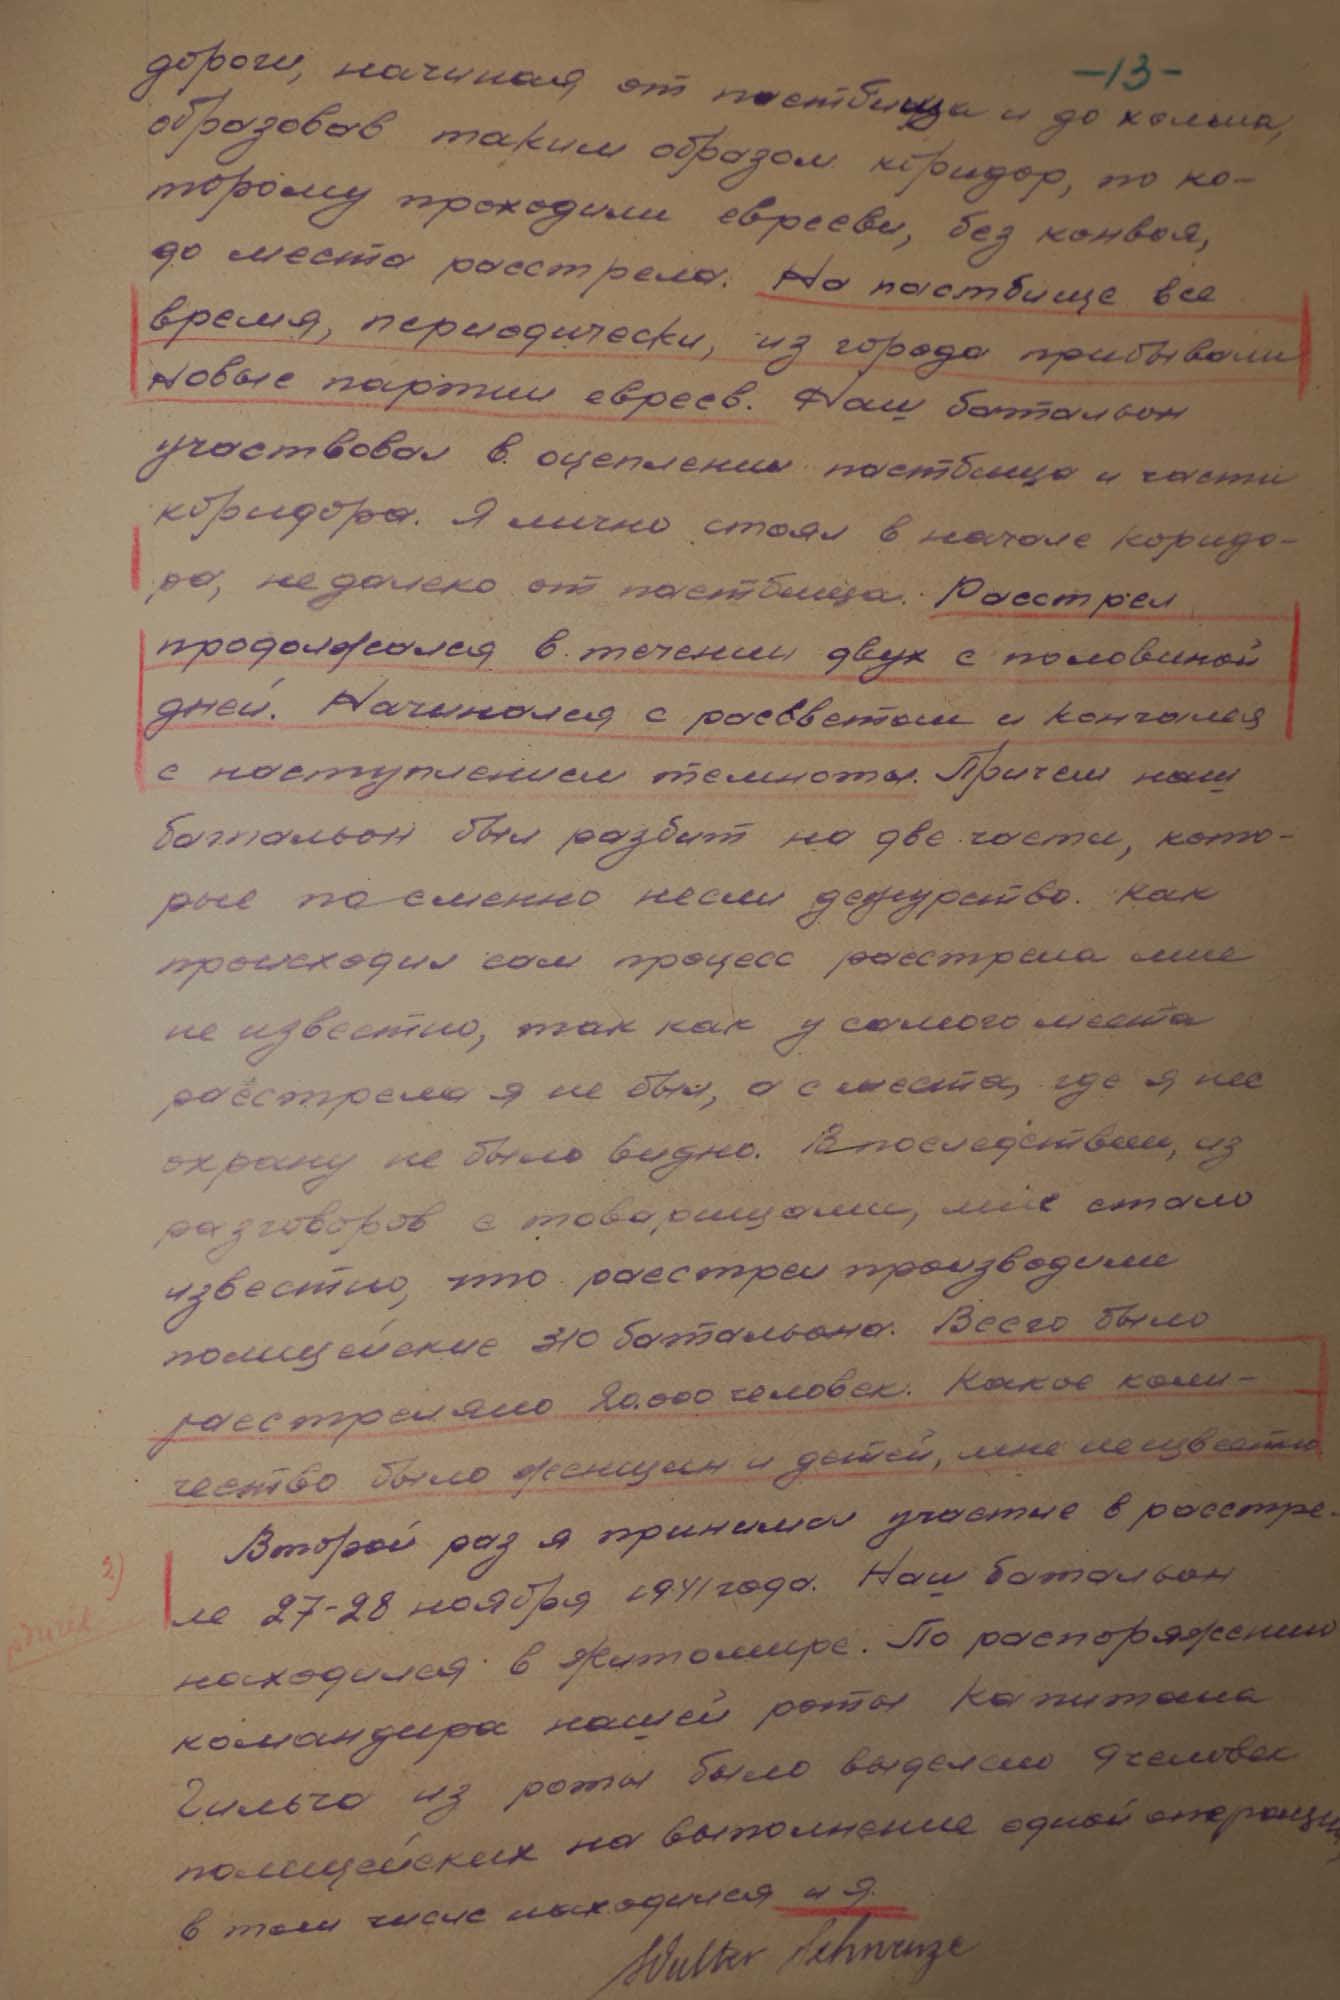 -13-
дороги, начиная от пастбища и до холма,
образовав таким образом коридор, по ко-
торому проходили евреевы, без конвоя,
до места расстрела. На пастбище все
время, периодически, из города прибывали
новые партии евреев. Наш батальон
участвовал в оцеплении пастбища и части
коридора. Я лично стоял в начале коридо-
ра, недалеко от пастбища. Расстрел
продолжался в течении двух с половиной
дней. Начинался с рассветом и кончался
с наступлением темноты. Причем наш
батальон был разбит на две части, кото-
рые по сменно несли дежурство. Как
происходил сам процесс расстрела мне
не известно, так как у самого места
расстрела я не был, а с места, где я нес
охрану не было видно. Впоследствии, из
разговоров с товарищами, мне стало
известно, что расстрел производили
полицейские 310 батальона. Всего было
расстреляно 20.000 человек. Какое коли-
чество было женщин и детей, мне неизвестно
Второй раз я принимал участие в расстре-
2)
ле 27-28 ноября 1941 года. Наш батальон
находился в Житомире. По распоряжению
командира нашей роты капитана
из роты было выделено 9 человек
полицейских на выполнение одной операции,
в том числе находился и я.
Walter